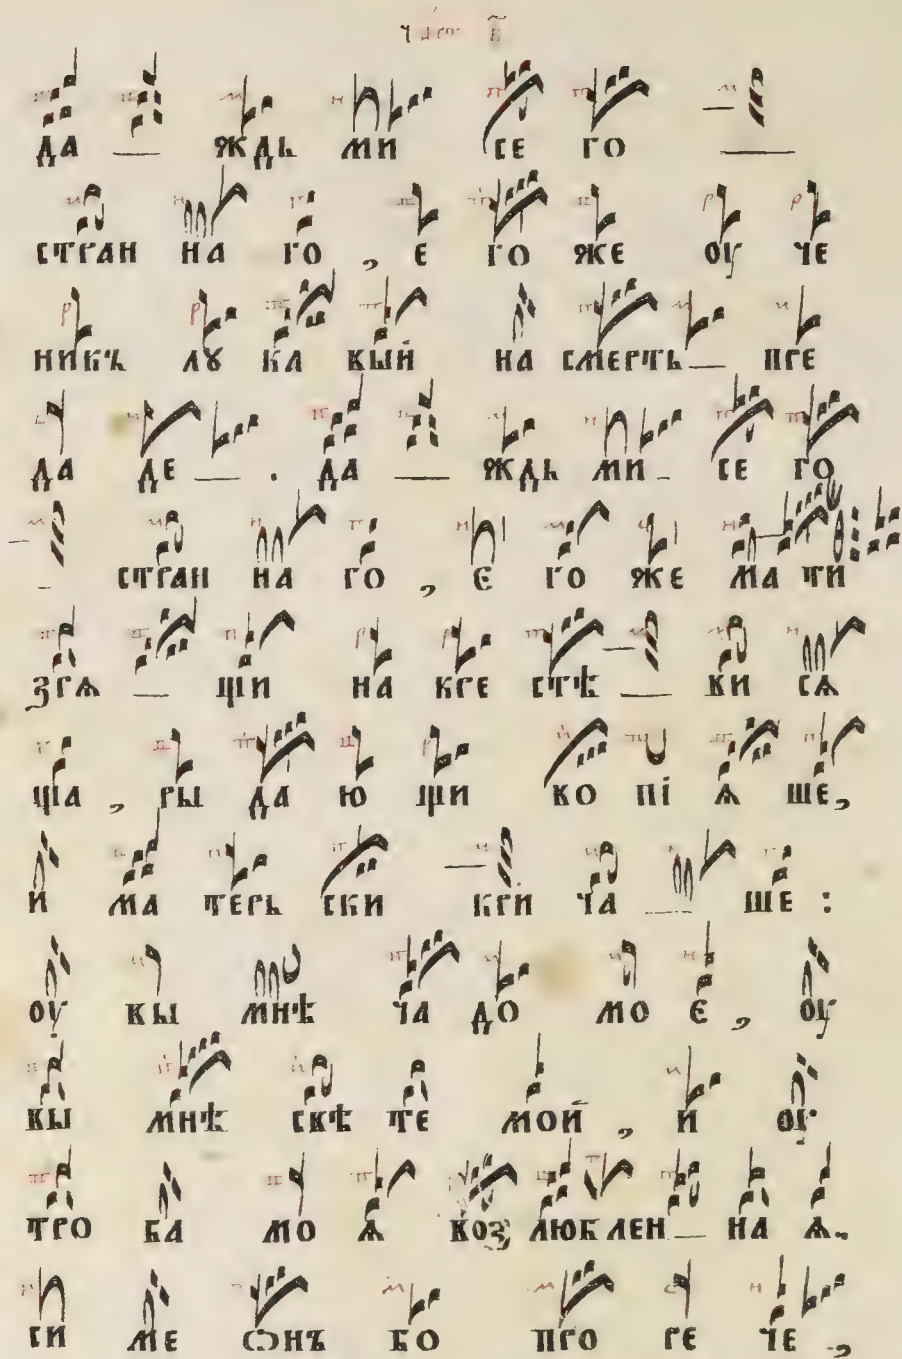 ДА — ЖДЬ МИ СЕ ГО —
СТРАН НА ГО , Е ГО ЖЕ ОУ ЧЕ
НИКЪ ЛꙊ КА ВЫЙ НА СМЕРТЬ — ПРЕ
ДА ДЕ — . ДА — ЖДЬ МИ — СЕ ГО
— СТРАН НА ГО , Е ГО ЖЕ МА ТИ
ЗРѦ — ЩИ НА КРЕ СТѢ — ВИ СѦ
ЩА , РЫ ДА Ю ЩИ ВО ПІ Ѧ ШЕ ,
И МА ТЕРЬ СКИ КРИ ЧА — ШЕ :
ОУ ВЫ МНѢ ЧА ДО МО Е , ОУ
ВЫ МНѢ СВѢ ТЕ МОЙ , И ОУ
ТРО БА МО Ѧ ВОЗ ЛЮБ ЛЕН — НА Ѧ .
СИ МЕ ѠНЪ БО ПРО РЕ ЧЕ ,